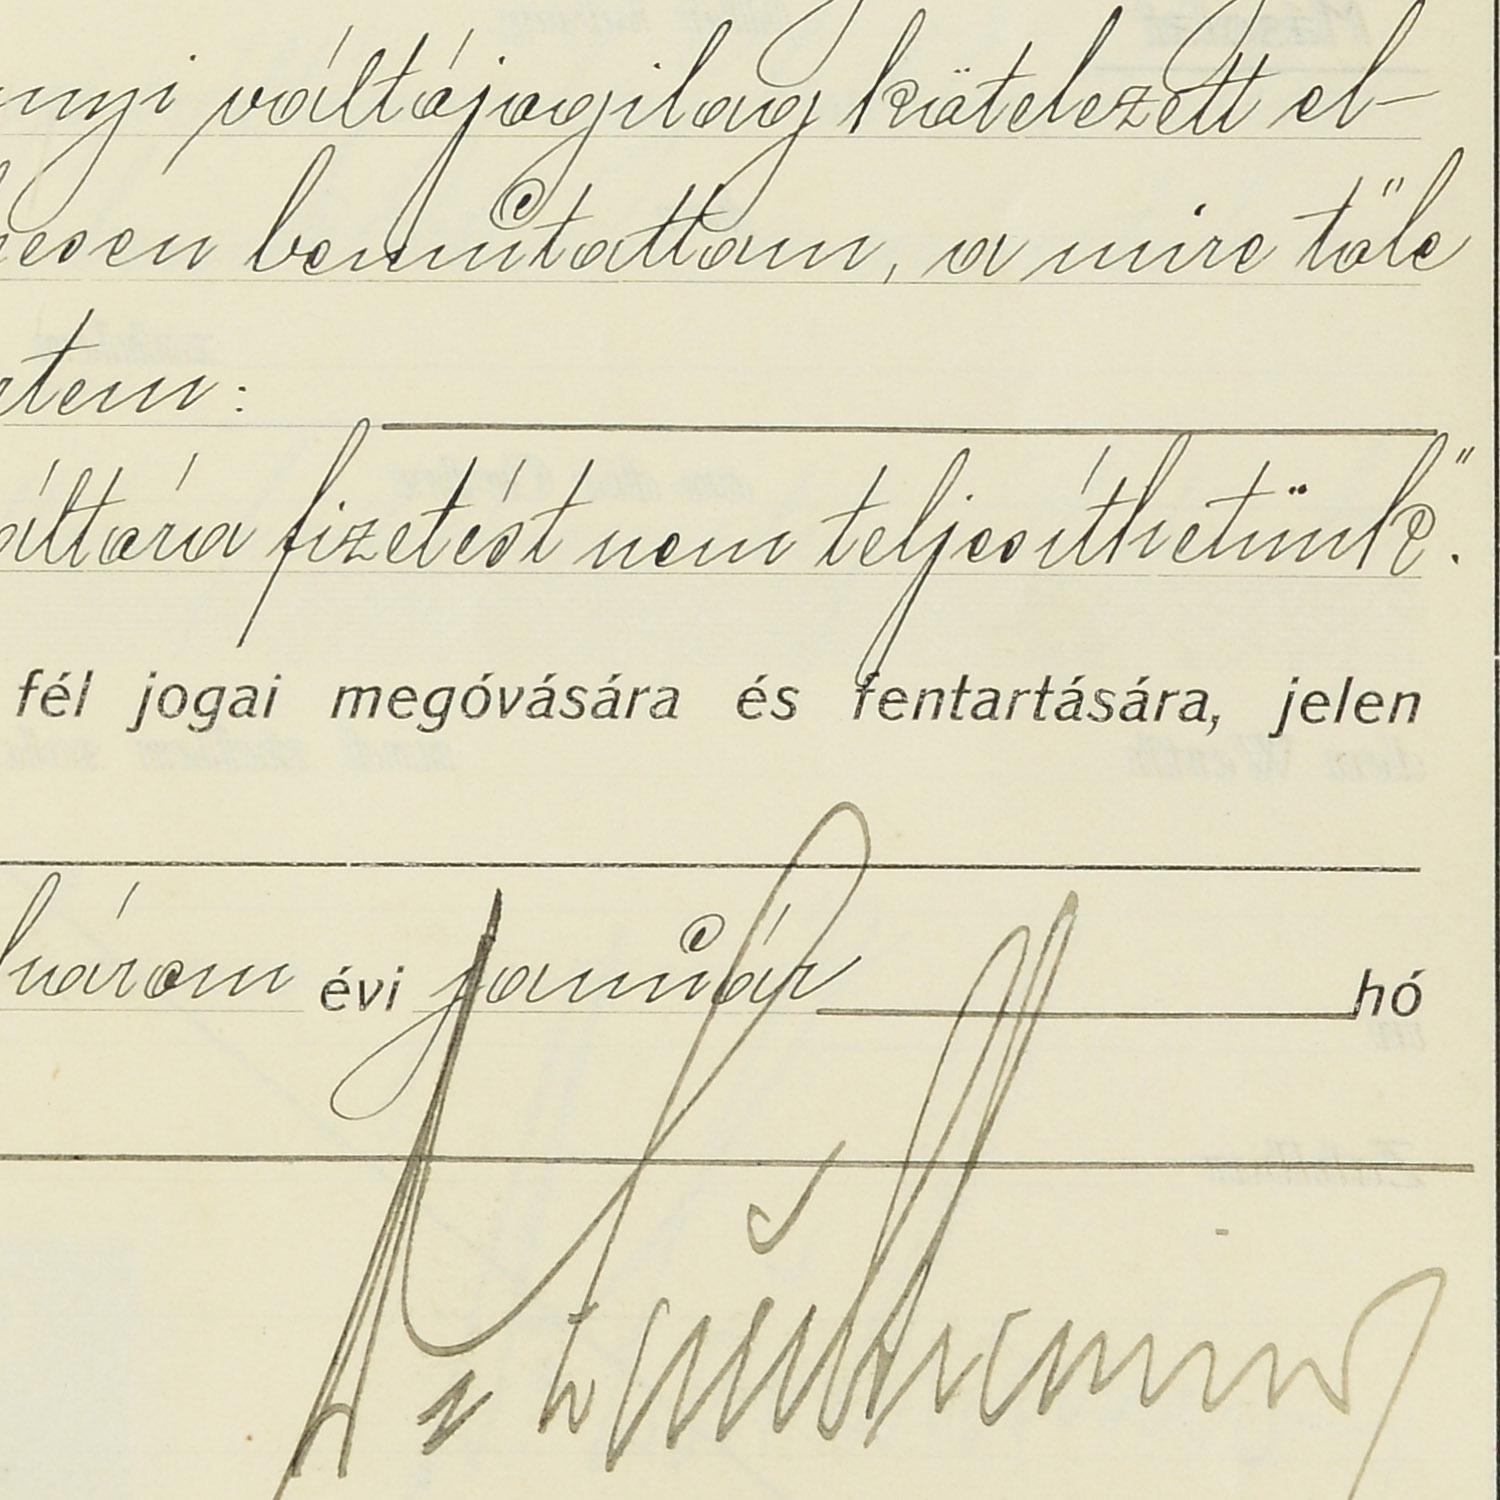 nyi váltójogilag kötelezett el-
hesen bemutattam, a mire tőle
tem:
áltóra fizetést nem teljesíthetünk".
fél jogai megóvására és fentartására, jelen
három évi január hó